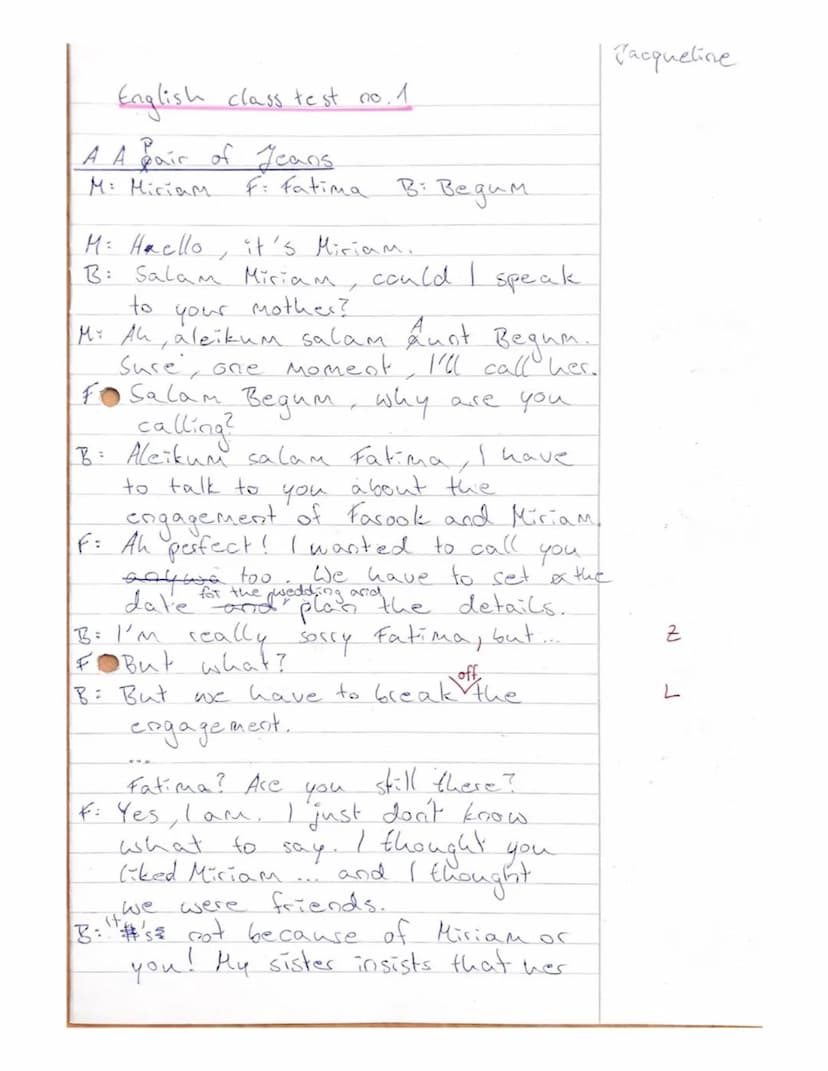 Jacqueline
English class test no. 1
A A Pair of Jeans
M: Miriam F: Fatima B: Begum
M: Hello, it's Miriam.
B: Salam Miriam, could I speak
to your mother?
M: Ah, aleikum salam Aunt Begum.
Sure, one moment, I'll call her.
F Salam Begum, why are you
calling?
B: Aleikum salam Fatima, I have
to talk to you about the
engagement of Farook and Miriam.
F: Ah perfect! I wanted to call you
too. We have to set the
for the wedding and
date and plan the details.
B: I'm really sorry Fatima, but... Z
F But what?
off
B: But we have to break the L
engagement.
...
Fatima? Are you still there?
F: Yes, I am. I just don't know
what to say. I thought you
liked Miriam ... and I thought
we were friends.
B: It's not because of Miriam or
you! My sister insists that her